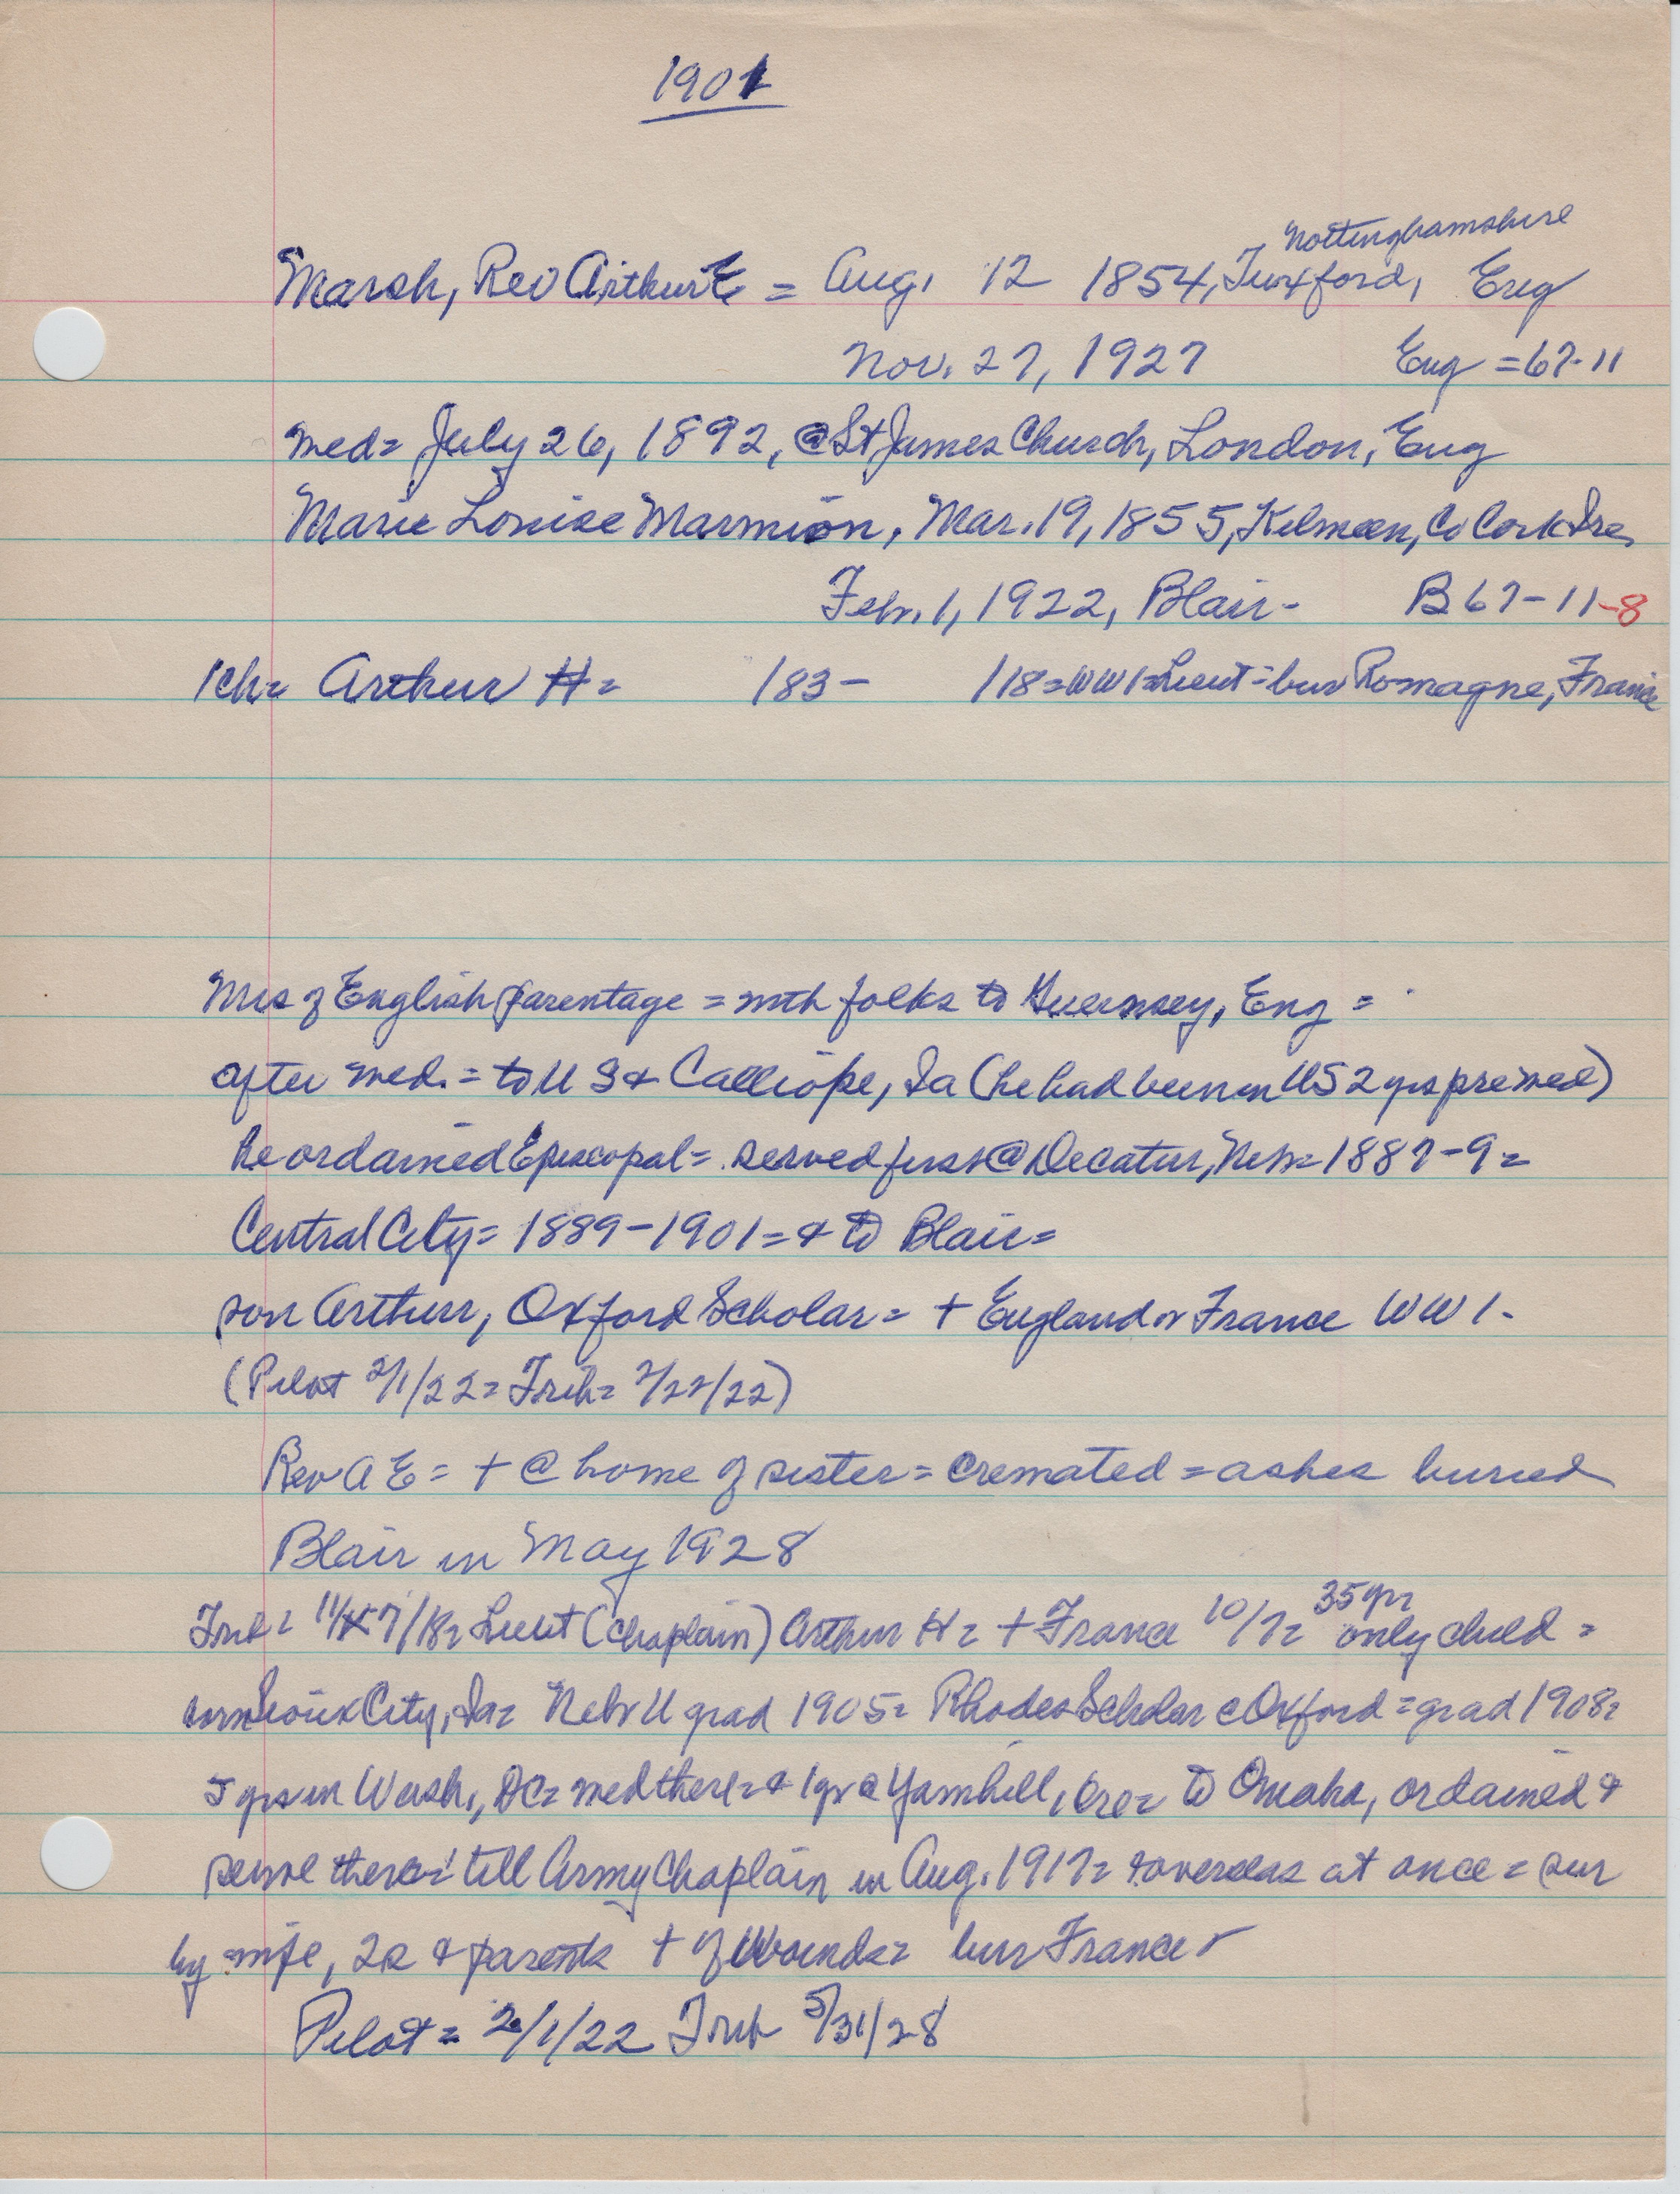 1901
Nottinghamshire
Marsh, Rev Arthur E = Aug. 12 1854, Tuxford, Eng
Nov. 27, 1927 Eng = 67-11
med= July 26, 1892, @ St James Church, London, Eng
Marie Louise Marmion, Mar. 19, 1855, Kilmeen, Co Cork Ire
Feb. 1, 1922, Blair- B 67-11-8
1ch= Arthur H= /83- /18=WW1=Lieut=bur Romagne, France
Mrs of English parentage = with folks to Guernsey, Eng =
after med. = to U S & Calliope, Ia (he had been in US 2 yrs pre med)
he ordained Episcopal = served first @ Decatur, Neb= 1887-9=
Central City= 1889-1901= & to Blair=
son Arthur, Oxford Scholar= + England or France WW1-
(Pilot 2/1/22= Trib= 2/22/22)
Rev A E = + @ home of sister = cremated = ashes buried
Blair in May 1928
Trib= 11/7/18= Lieut (Chaplain) Arthur H= + France 10/7= 35 yr only child =
born Sioux City, Ia= Neb U grad 1905= Rhodes Scholar @ Oxford = grad 1908=
5 yrs in Wash., DC= med there= & 1 yr @ Yamhill, Ore= to Omaha, ordained &
serve there= till Army Chaplain in Aug. 1917= & overseas at once = sur
by wife, 2s & parents + of Wounds= bur France
Pilot= 2/1/22 Trib 5/31/28